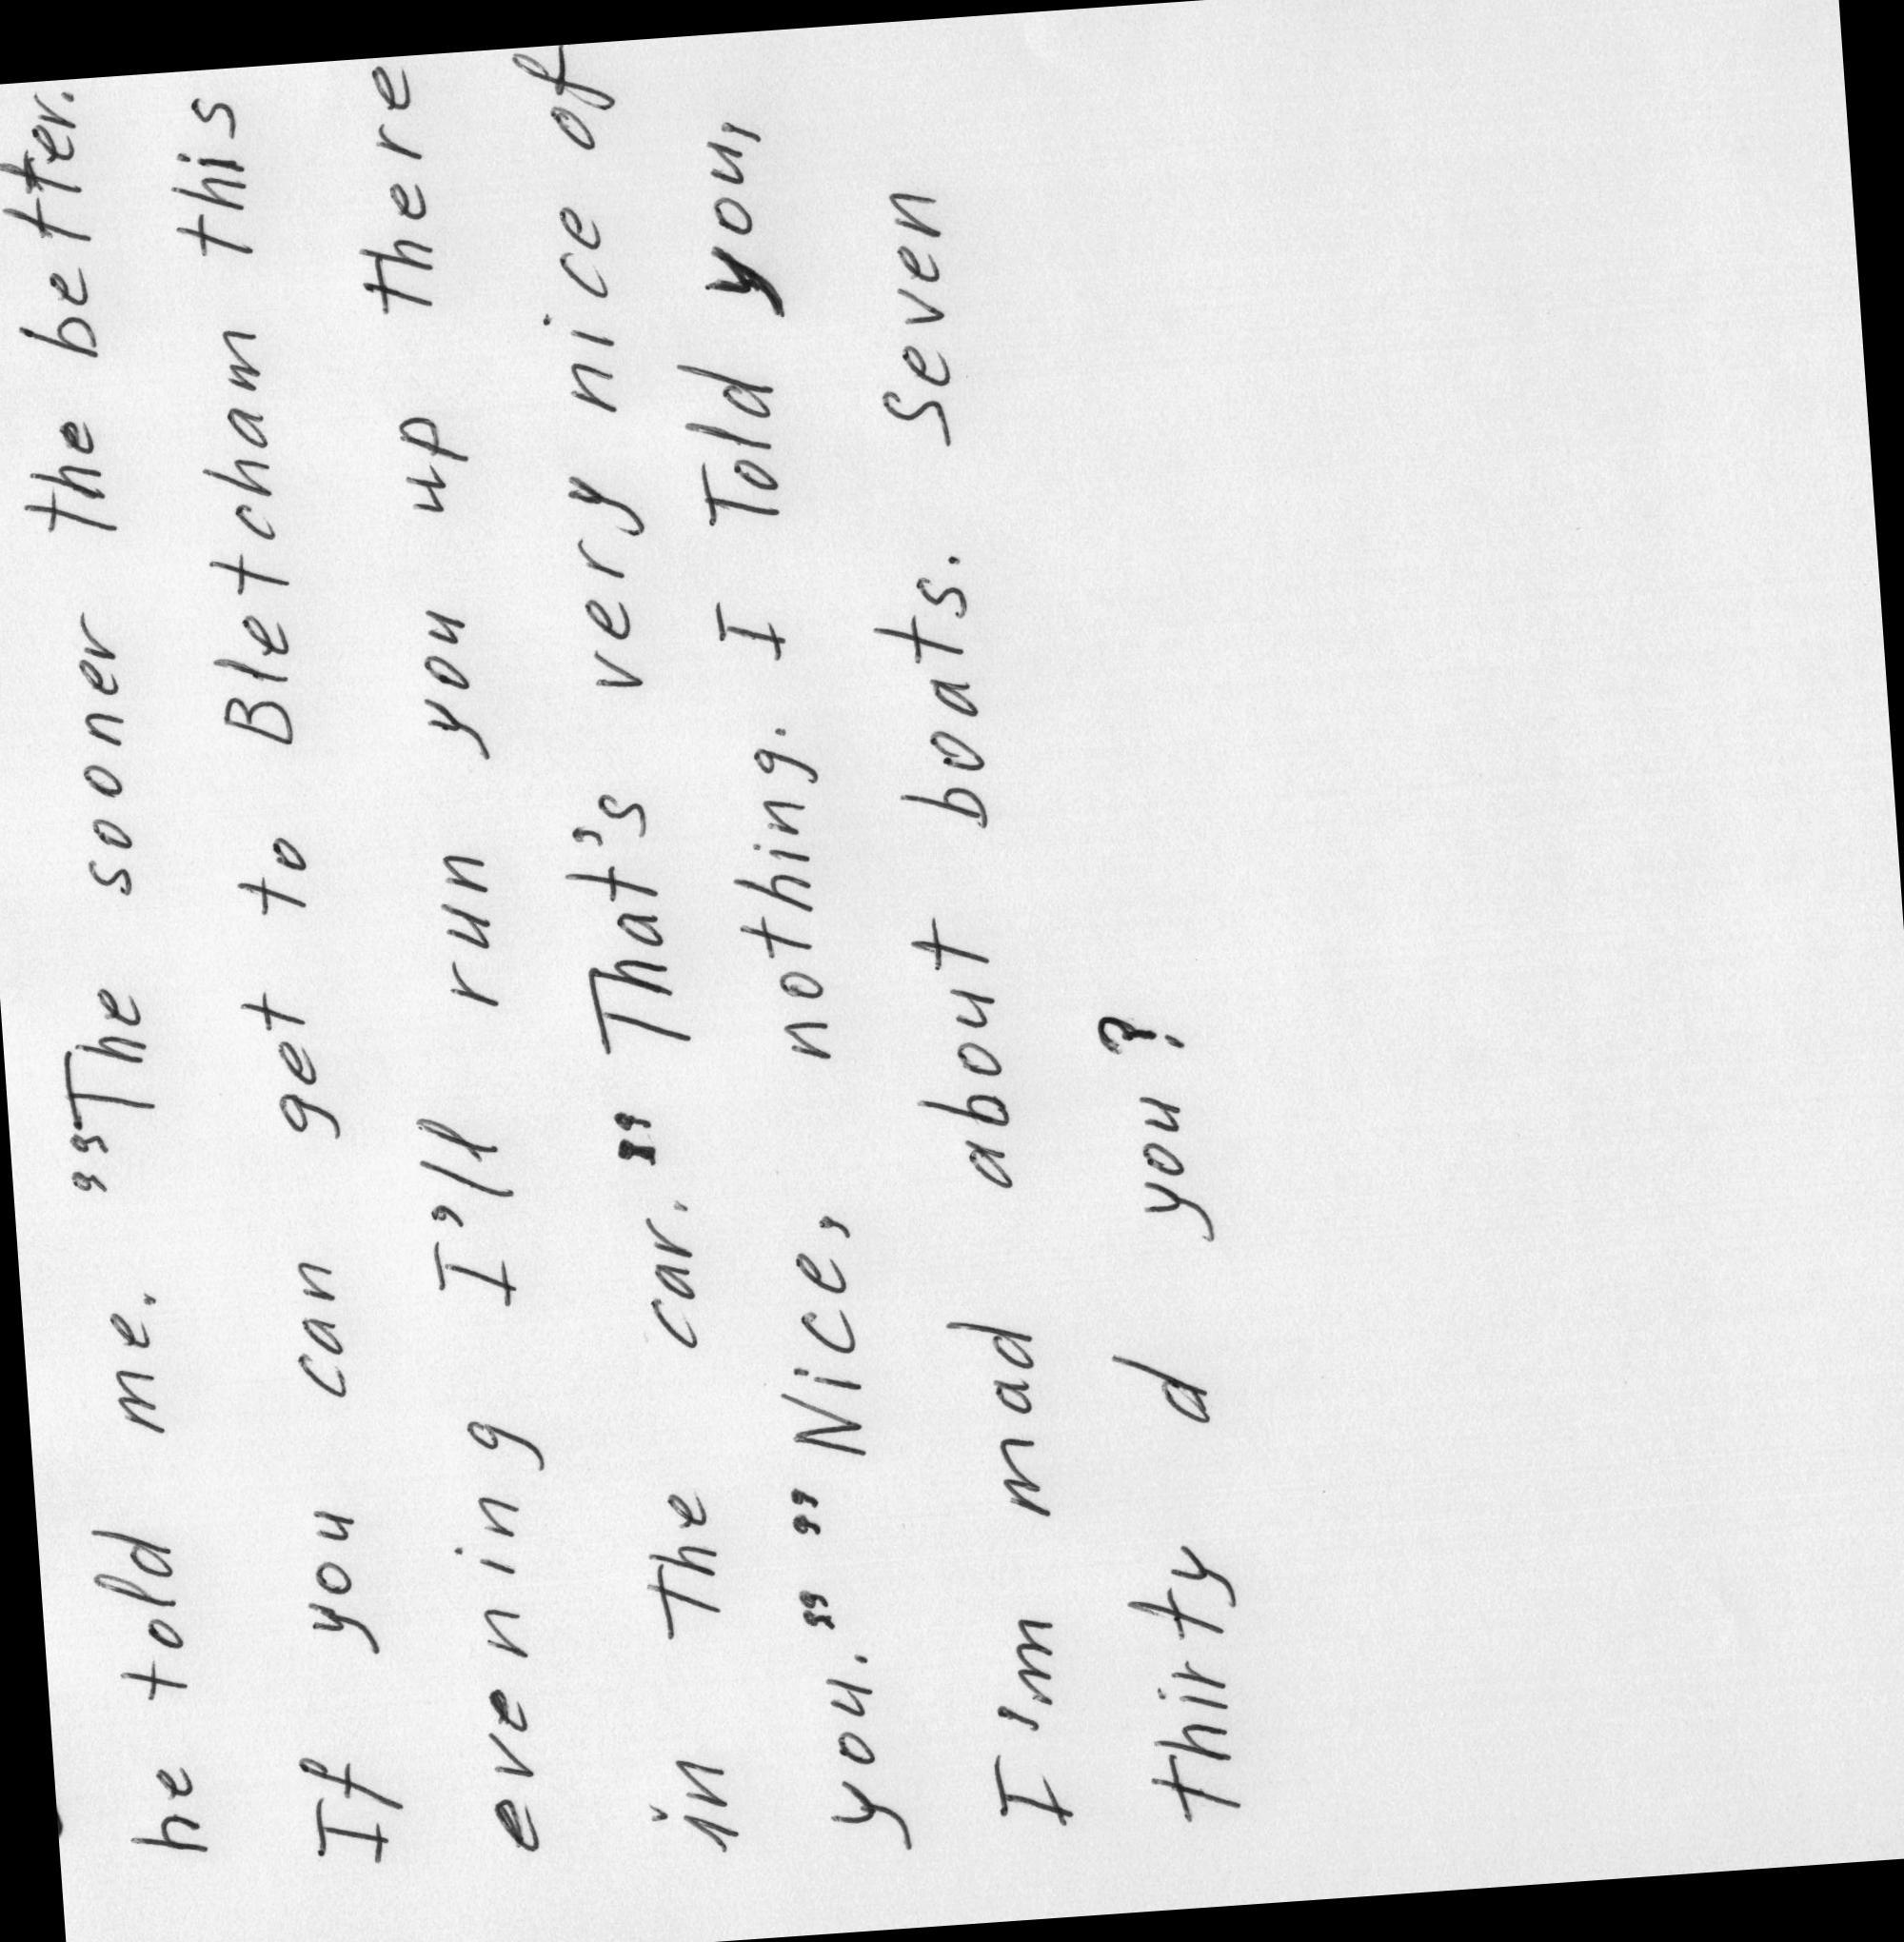 he told me. "The sooner the better.
If you can get to Bletcham this
evening I'll run you up there
in The car." "That's very nice of
you." "Nice, nothing. I Told you,
I'm mad about boats. Seven
thirty d you?